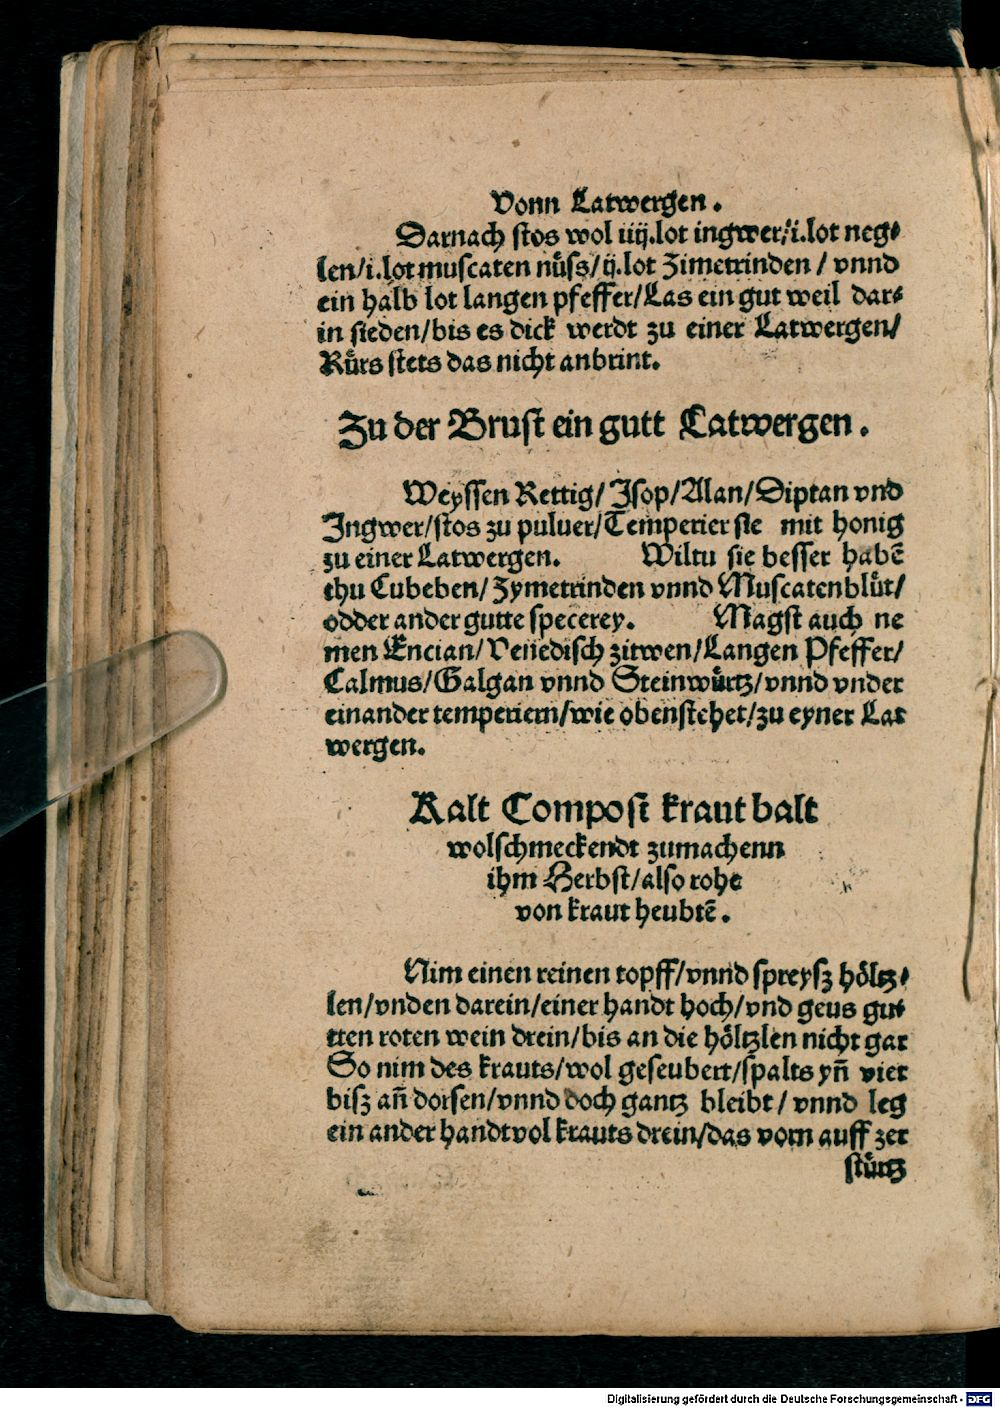 Vonn Latwergen.
Darnach stos wol iiij.lot ingwer/i.lot neg⸗
len/i.lot muscaten nüss/ij.lot Zimetrinden / vnnd
ein halb lot langen pfeffer/Las ein gut weil dar⸗
in sieden/bis es dick werdt zu einer Latwergen/
Rürs stets das nicht anbrint.
Zu der Brust ein gutt Latwergen.
Weyssen Rettig/ Jsop/Alan/Diptan vnd
Jngwer/stos zu puluer/Temperier sie mit honig
zu einer Latwergen. Wiltu sie besser habē
thu Cubeben/ Zymetrinden vnnd Muscatenblüt/
odder ander gutte specerey. Magst auch ne
men Encian/Venedisch zitwen/Langen Pfeffer/
Calmus/Galgan vnnd Steinwürtz/vnnd vnder
einander temperiern/wie obenstehet/zu eyner Lat
wergen.
Kalt Compost kraut balt
wolschmeckendt zumachenn
ihm Herbst/also rohe
von kraut heubtē.
Nim einen reinen topff/vnnd spreysz höltz⸗
len/vnden darein/einer handt hoch/vnd geus gu⸗
tten roten wein drein/bis an die höltzlen nicht gar
So nim des krauts/wol geseubert/spalts yn̄ vier
bisz an̄ dorsen/vnnd doch gantz bleibt/ vnnd leg
ein ander handtvol krauts drein/das vorn auff zer
stürtz
Digitalisierung gefördert durch die Deutsche Forschungsgemeinschaft - DFG